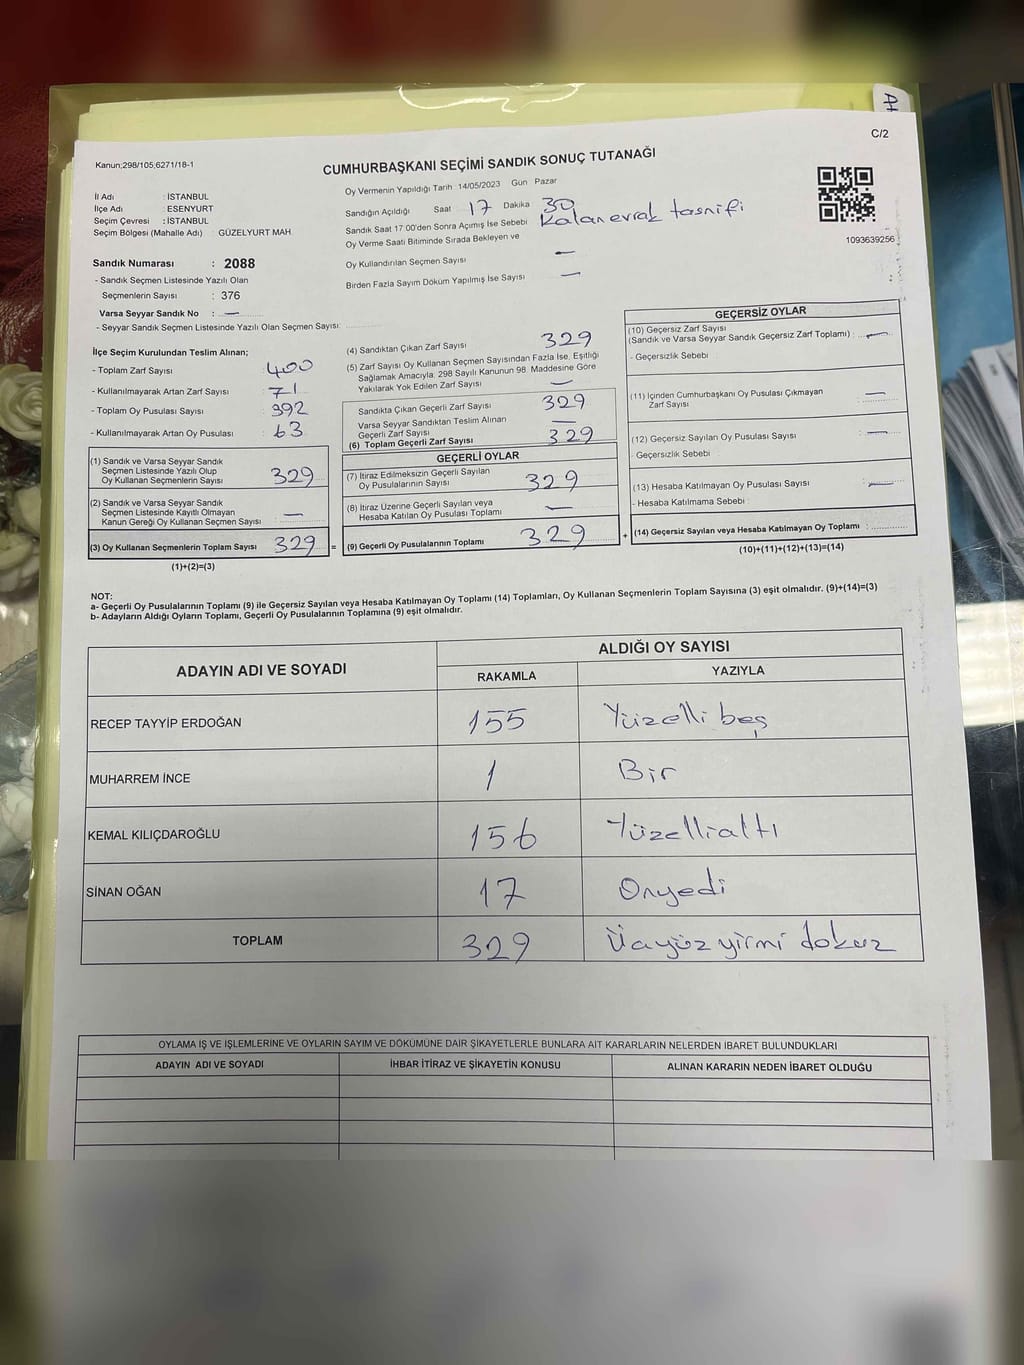 C/2
Kanun;298/105;6271/18-1
CUMHURBAŞKANI SEÇİMİ SANDIK SONUÇ TUTANAĞI
İl Adı : İSTANBUL
İlçe Adı : ESENYURT
Seçim Çevresi : İSTANBUL
Seçim Bölgesi (Mahalle Adı) : GÜZELYURT MAH.
Sandık Numarası : 2088
- Sandık Seçmen Listesinde Yazılı Olan
Seçmenlerin Sayısı : 376
Varsa Seyyar Sandık No : —
- Seyyar Sandık Seçmen Listesinde Yazılı Olan Seçmen Sayısı:
Oy Vermenin Yapıldığı Tarih 14/05/2023 Gün Pazar
Sandığın Açıldığı Saat 17 Dakika 30
Sandık Saat 17 00'den Sonra Açımış İse Sebebi Kalan evrak tasnifi
Oy Verme Saati Bitiminde Sırada Bekleyen ve
Oy Kullandırılan Seçmen Sayısı —
Birden Fazla Sayım Döküm Yapılmış İse Sayısı —
1093639256
İlçe Seçim Kurulundan Teslim Alınan;
- Toplam Zarf Sayısı : 400
- Kullanılmayarak Artan Zarf Sayısı : 71
- Toplam Oy Pusulası Sayısı : 392
- Kullanılmayarak Artan Oy Pusulası : 63
(1) Sandık ve Varsa Seyyar Sandık
Seçmen Listesinde Yazılı Olup
Oy Kullanan Seçmenlerin Sayısı : 329
(2) Sandık ve Varsa Seyyar Sandık
Seçmen Listesinde Kayıtlı Olmayan
Kanun Gereği Oy Kullanan Seçmen Sayısı : —
(3) Oy Kullanan Seçmenlerin Toplam Sayısı 329 =
(1)+(2)=(3)
(4) Sandıktan Çıkan Zarf Sayısı 329
(5) Zarf Sayısı Oy Kullanan Seçmen Sayısından Fazla İse, Eşitliği
Sağlamak Amacıyla, 298 Sayılı Kanunun 98. Maddesine Göre
Yakılarak Yok Edilen Zarf Sayısı —
Sandıkta Çıkan Geçerli Zarf Sayısı 329
Varsa Seyyar Sandıktan Teslim Alınan
Geçerli Zarf Sayısı —
(6) Toplam Geçerli Zarf Sayısı 329
GEÇERLİ OYLAR
(7) İtiraz Edilmeksizin Geçerli Sayılan
Oy Pusulalarının Sayısı 329
(8) İtiraz Üzerine Geçerli Sayılan veya
Hesaba Katılan Oy Pusulası Toplamı —
(9) Geçerli Oy Pusulalarının Toplamı 329 +
GEÇERSİZ OYLAR
(10) Geçersiz Zarf Sayısı
(Sandık ve Varsa Seyyar Sandık Geçersiz Zarf Toplamı) : —
- Geçersizlik Sebebi
(11) İçinden Cumhurbaşkanı Oy Pusulası Çıkmayan
Zarf Sayısı : —
(12) Geçersiz Sayılan Oy Pusulası Sayısı : —
Geçersizlik Sebebi :
(13) Hesaba Katılmayan Oy Pusulası Sayısı : —
- Hesaba Katılmama Sebebi :
(14) Geçersiz Sayılan veya Hesaba Katılmayan Oy Toplamı :
(10)+(11)+(12)+(13)=(14)
NOT:
a- Geçerli Oy Pusulalarının Toplamı (9) ile Geçersiz Sayılan veya Hesaba Katılmayan Oy Toplamı (14) Toplamları, Oy Kullanan Seçmenlerin Toplam Sayısına (3) eşit olmalıdır. (9)+(14)=(3)
b- Adayların Aldığı Oyların Toplamı, Geçerli Oy Pusulalarının Toplamına (9) eşit olmalıdır.
ADAYIN ADI VE SOYADI
ALDIĞI OY SAYISI
RAKAMLA YAZIYLA
RECEP TAYYİP ERDOĞAN 155 Yüzelli beş
MUHARREM İNCE 1 Bir
KEMAL KILIÇDAROĞLU 156 Yüzellialtı
SİNAN OĞAN 17 Onyedi
TOPLAM 329 Üçyüz yirmi dokuz
OYLAMA İŞ VE İŞLEMLERİNE VE OYLARIN SAYIM VE DÖKÜMÜNE DAİR ŞİKAYETLERLE BUNLARA AİT KARARLARIN NELERDEN İBARET BULUNDUKLARI
ADAYIN ADI VE SOYADI İHBAR İTİRAZ VE ŞİKAYETİN KONUSU ALINAN KARARIN NEDEN İBARET OLDUĞU